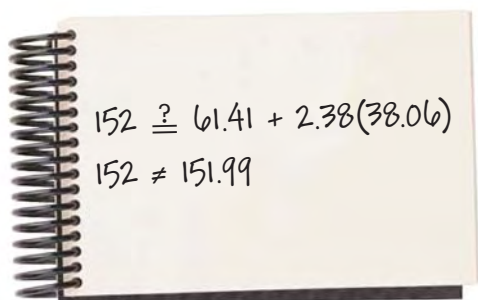 152 ≟ 61.41 + 2.38(38.06)
152 ≠ 151.99